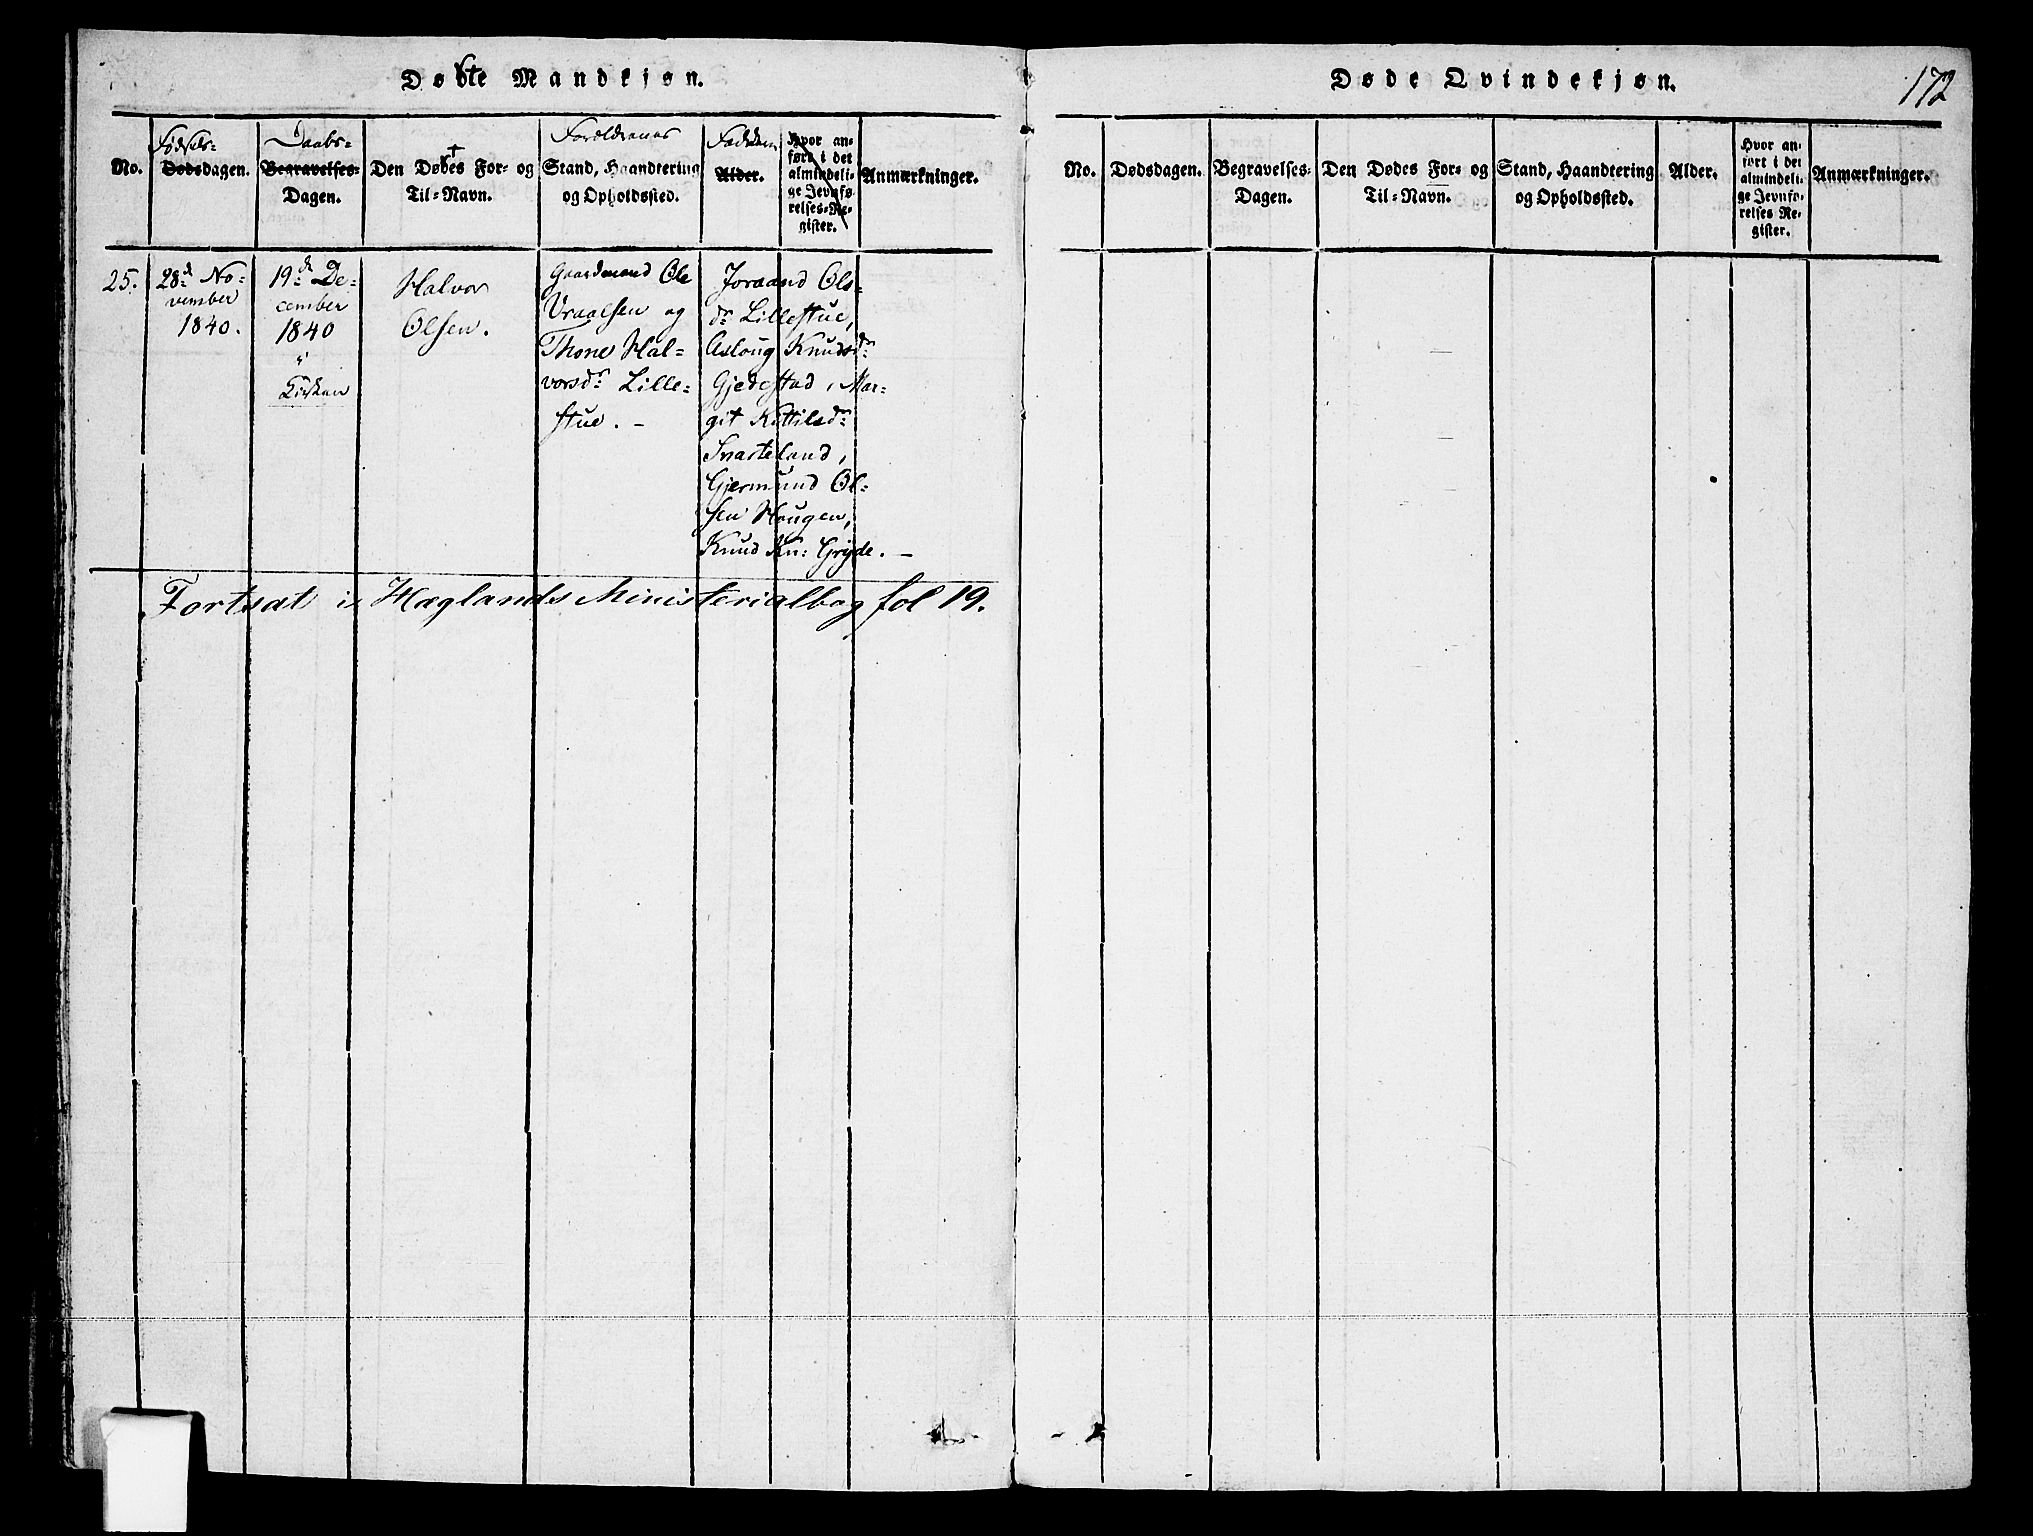 Døbte Mandkjøn.
No.
Fødsels-
Dødsdagen.
Daabs-
Begravelses-
Dagen.
Den Døbtes For- og
Til-Navn.
Forældrenes
Stand, Haandtering
og Opholdssted.
Faddere
Alder.
Hvor an-
ført i det
almindeli-
ge Jevnfø-
relses-Re-
gister.
Anmærkninger.
25.
28d No-
vember
1840.
19d De-
cember
1840
i
Kirken
Halvor
Olsen.
Gaardmand Ole
Vraalsen og
Thone Hal-
vorsdr Lille-
stue. -
Joraand Ols-
dr Lillestue,
Asloug Knudsdr
Gjedestad, Mar-
git Kittilsdr
Svarteland,
Gjermund Ol-
sen Hougen,
Knud Kn: Gryde. -
Fortsat i Hæglands Ministerialbog fol 19.
Døde Qvindekjøn.
172
No.
Dødsdagen.
Begravelses-
Dagen.
Den Dødes For- og
Til-Navn.
Stand, Haandtering
og Opholdssted.
Alder.
Hvor an-
ført i det
almindeli-
ge Jevnfø-
relses Re-
gister.
Anmærkninger.